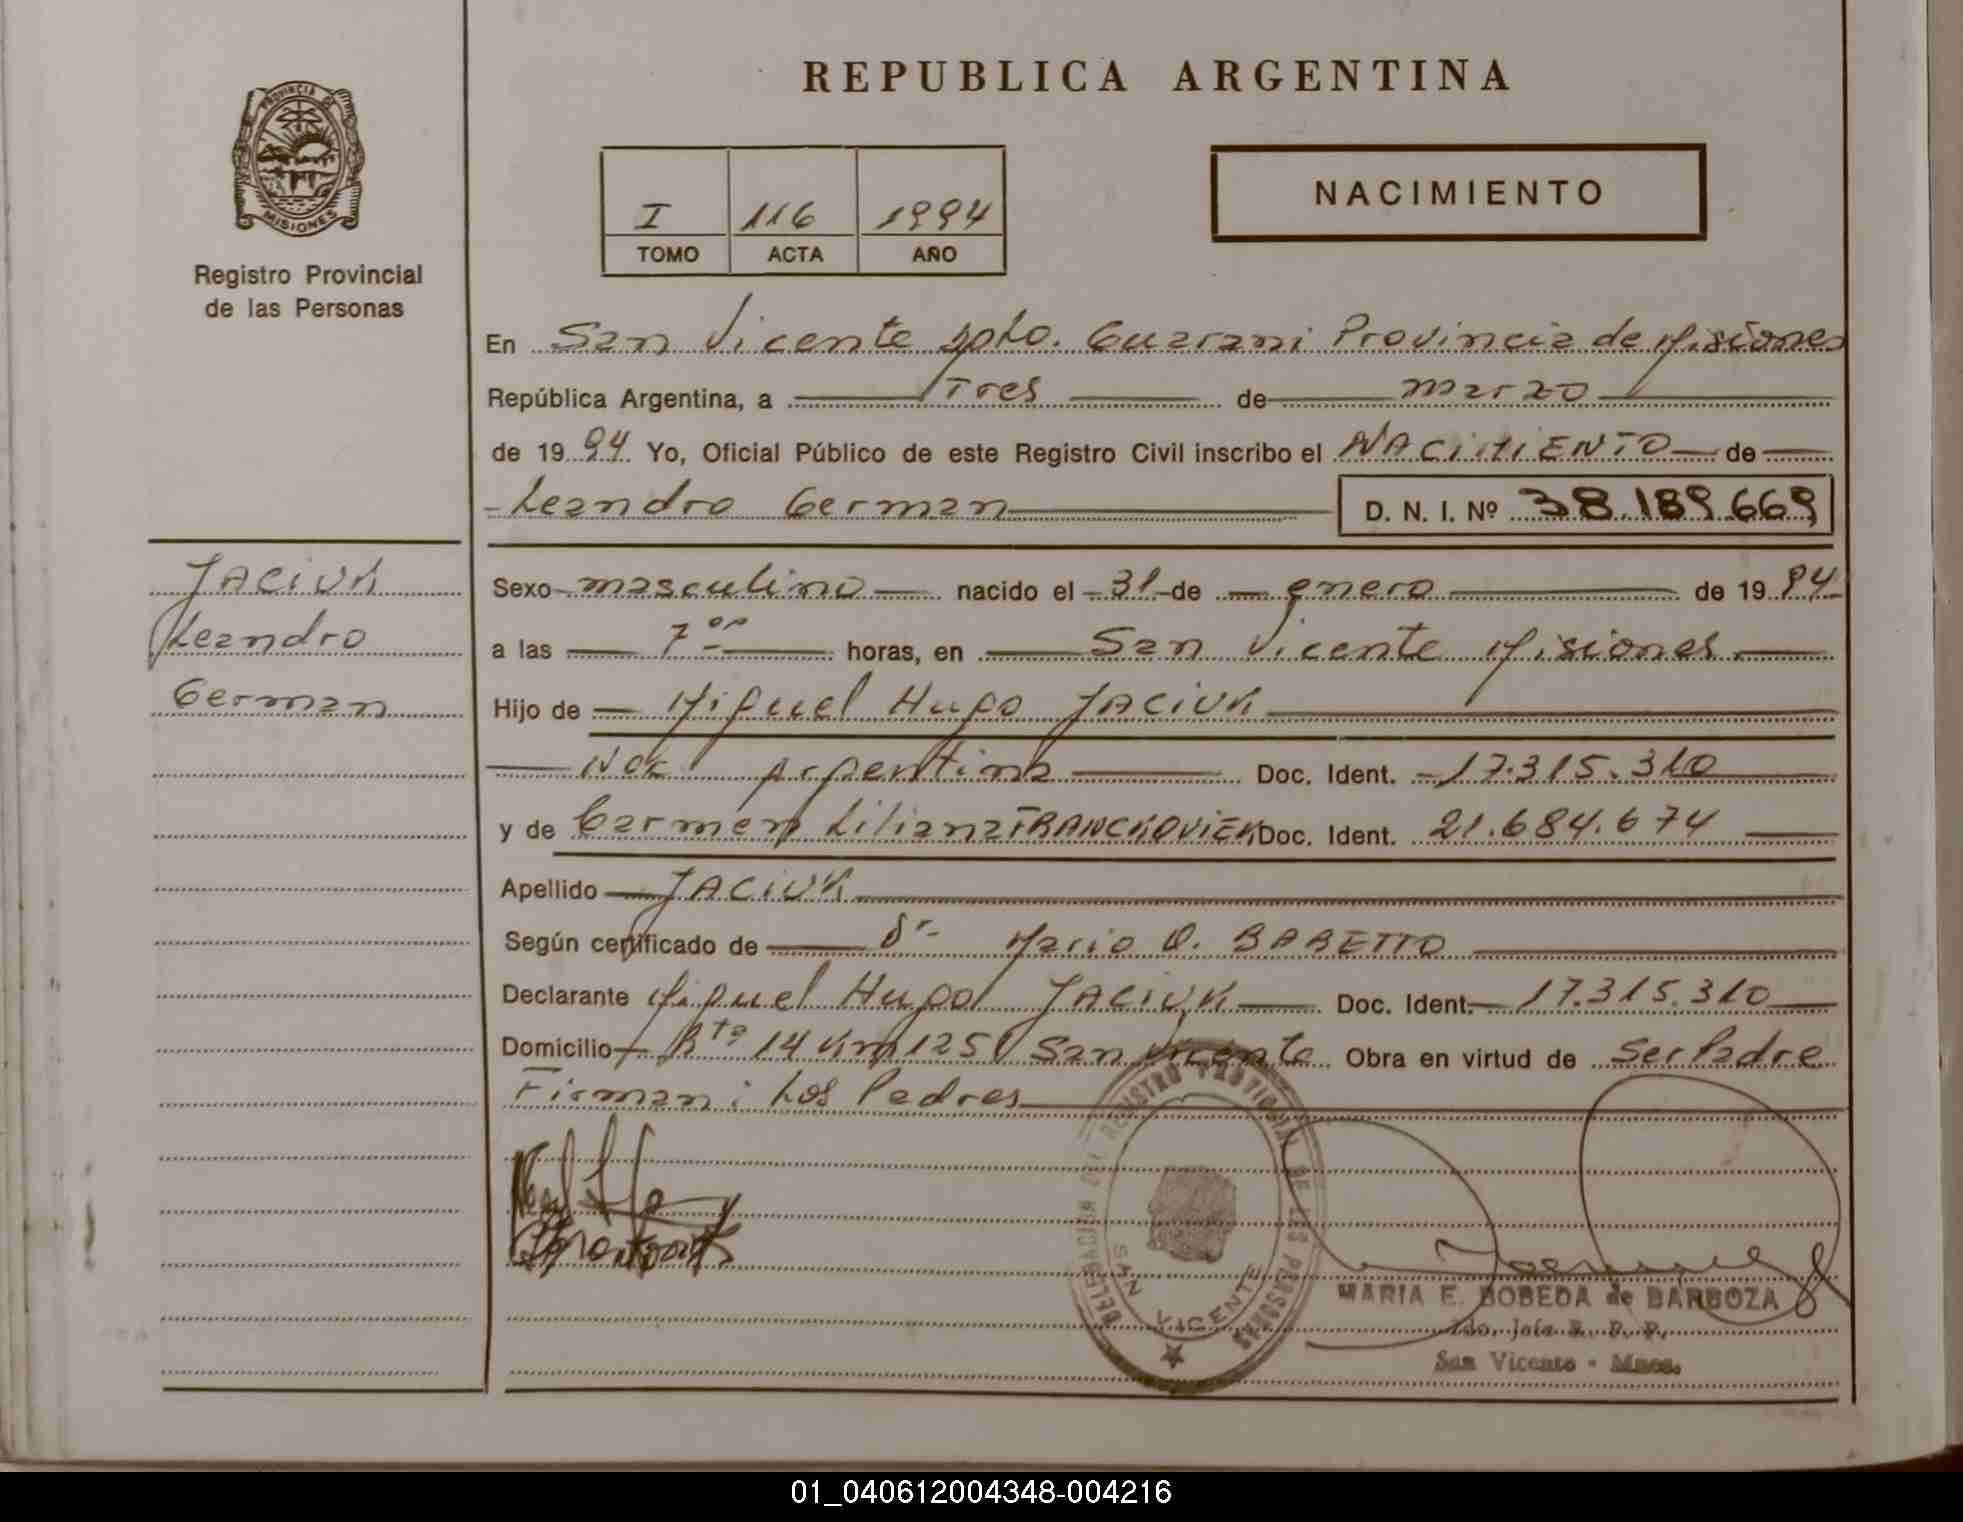 REPUBLICA ARGENTINA
PROVINCIA DE
MISIONES
Registro Provincial
de las Personas
I 116 1994
TOMO ACTA AÑO
NACIMIENTO
En San Vicente Dpto. Guarani Provincia de Misiones
República Argentina, a Tres de marzo
de 1994 Yo, Oficial Público de este Registro Civil inscribo el NACIMIENTO de
Leandro German D. N. I. Nº 38.189.669
JACIUK
Leandro
German
Sexo masculino nacido el 31 de enero de 1994
a las 7 oo horas, en San Vicente Misiones
Hijo de Miguel Hugo JACIUK
Nac Argentina Doc. Ident. 17.315.310
y de Carmen Liliana FRANCKOVIEK Doc. Ident. 21.684.674
Apellido JACIUK
Según certificado de Dr Mario O. BABETTO
Declarante Miguel Hugo JACIUK Doc. Ident. 17.315.310
Domicilio Rta 14 Km 1251 San Vicente Obra en virtud de Ser Padre
Firman: Los Padres
DELEGACION DEL REGISTRO PROVINCIAL DE LAS PERSONAS
SAN VICENTE
MARIA E. BOBEDA de BARBOZA
2do. Jefe R. P. P.
San Vicente - Mnes.
01_040612004348-004216